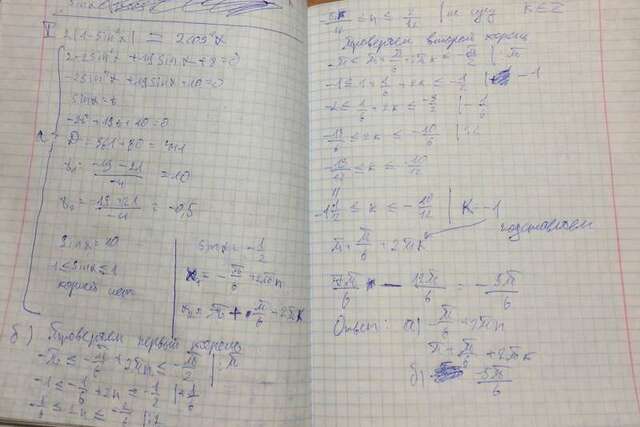 2(1-sin²x) = 2cos²x
2-2sin²x + 19sinx + 8 = 0
-2sin²x + 19sinx + 10 = 0
sinx = t
-2t² + 19t + 10 = 0
D = 361 + 80 = 441
t₁ = (-19 - 21)/-4 = 10
t₂ = (-19 + 21)/-4 = -0,5
sinx = 10
-1 ≤ sinx ≤ 1
корней нет
sinx = -1/2
x₁ = -π/6 + 2πn
x₂ = π + π/6 + 2πk
б) Проверяем первый корень
-π ≤ -π/6 + 2πn ≤ -π/2 | :π
-1 ≤ -1/6 + 2n ≤ -1/2 | +1/6
≤ n ≤ k∈Z
Проверяем второй корень
-π ≤ π + π/6 + 2πk ≤ -π/2 | :π
-1 ≤ 1 + 1/6 + 2k ≤ -1/2 | -1
-2 ≤ 1/6 + 2k ≤ -3/2 | -1/6
-13/6 ≤ 2k ≤ -10/6 | :2
-13/12 ≤ k ≤ -10/12
-1 1/12 ≤ k ≤ -10/12 | k = -1
подставляем
π + π/6 + 2πk
7π/6 - 12π/6 = -5π/6
Ответ: а) -π/6 + 2πn
π + π/6 + 2πk
б) -5π/6